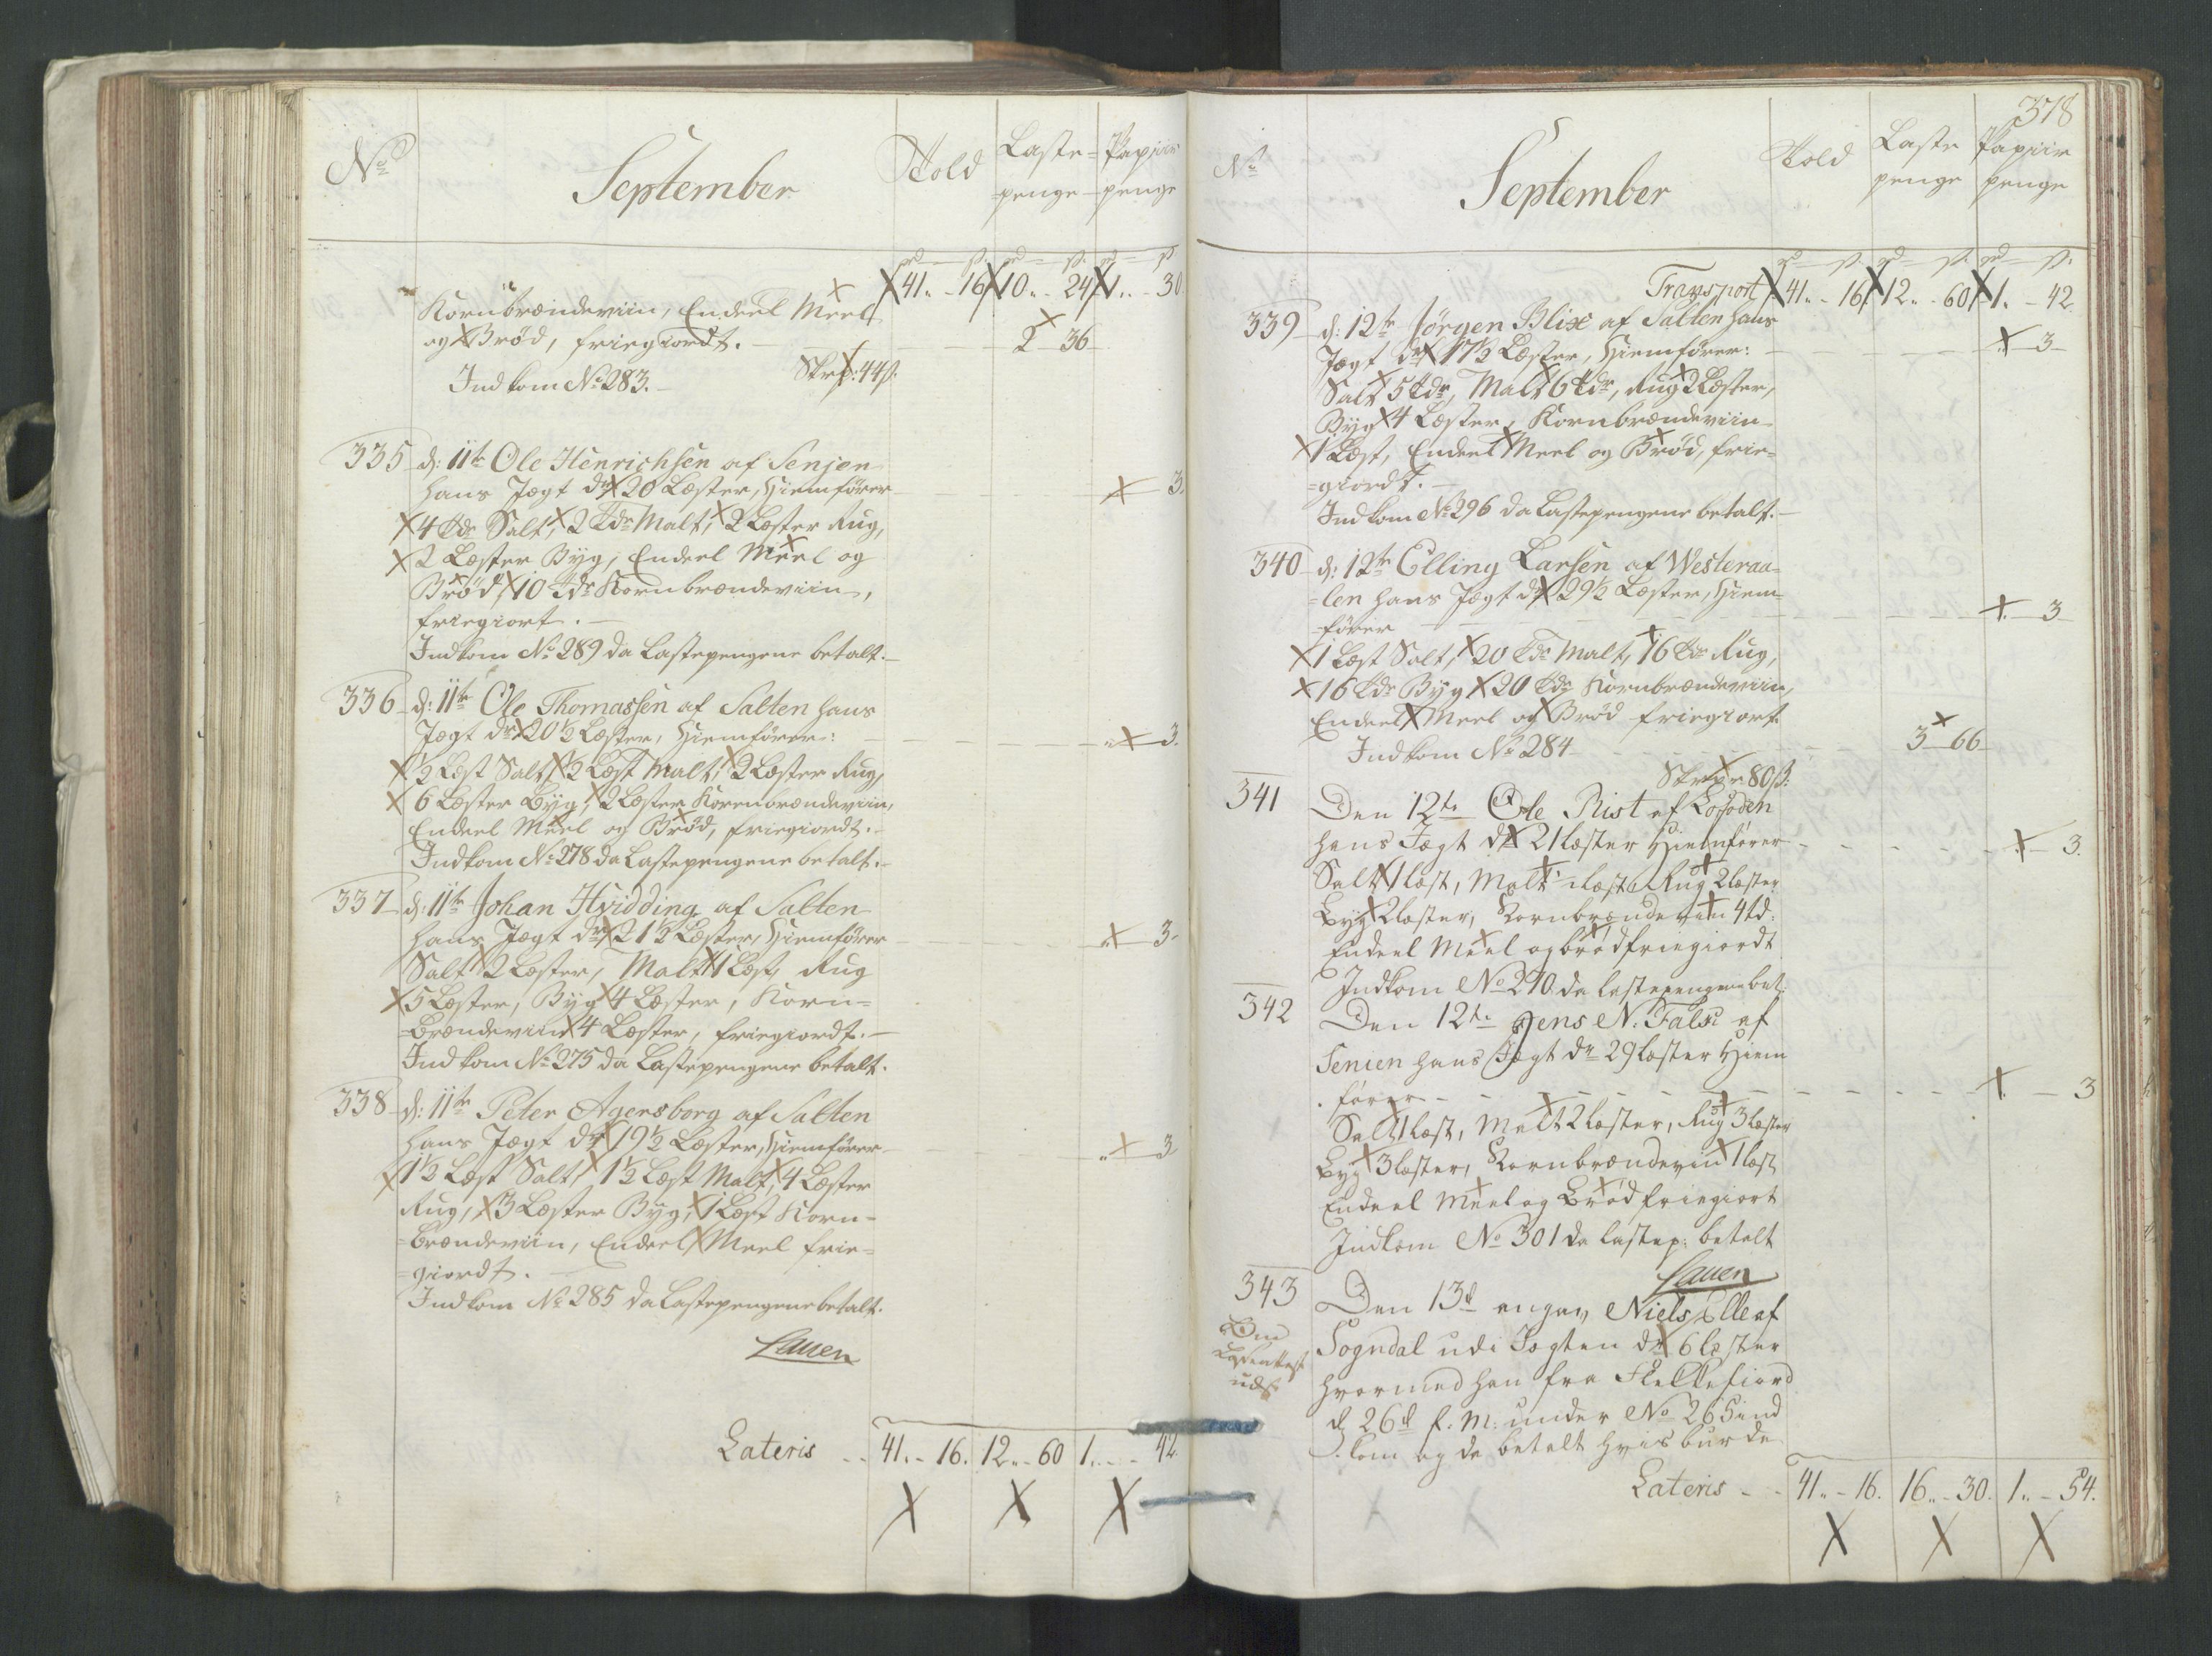 No
September
Told
Laste-
penge
Papiir
penge
41.. 16 10.. 24 1.. 30
Kornbrændeviin, Endeel Meel
og Brød, friegiordt. 2 36
Indkom No 283. Skrp: 44 s.
335 d: 11te Ole Henrichsen af Senjen
hans Jægt dr 20 Læster, Hiemfører 3.
4 tdr Salt, 2 tdr Malt, 2 Læster Rug,
2 Læster Byg, Endeel Meel og
Brød, 10 tdr Kornbrændeviin,
friegiort.
Indkom No 289 da Lastepengene betalt.
336 d: 11te Ole Thomassen af Salten hans
Jægt dr 20 1/2 Læster, Hiemfører: 3.
1/2 Læst Salt, 1/2 Læst Malt, 2 Læster Rug,
6 Læster Byg, 2 Læster Kornbrændeviin,
Endeel Meel og Brød, friegiordt.
Indkom No 278 da Lastepengene betalt.
337 d: 11te Johan Hvidding af Salten
hans Jægt dr 21 1/2 Læster, Hiemfører 3.
Salt 2 Læster, Malt 1 Læst, Rug
5 Læster, Byg 4 Læster, Korn=
=brændeviin 4 Læster, friegiordt.
Indkom No 275 da Lastepengene betalt.
338 d: 11te Peter Agersborg af Salten
hans Jægt dr 19 1/2 Læster, Hiemfører 3
1 1/2 Læst Salt, 1 1/2 Læst Malt, 4 Læster
Rug, 3 Læster Byg, 1 Læst Korn=
=brændeviin, Endeel Meel frie=
=giordt.
Indkom No 285 da Lastepengene betalt.
Lauen
Lateris 41.. 16. 12.. 60 1.. 42.
378
No
September
Told
Laste
penge
Papiir
penge
Transport 41.. 16 12.. 60 1.. 42.
339 d: 12te Jörgen Blix af Salten hans
Jægt dr 17 1/2 Læster, Hiemfører: 3
Salt 5 tdr, Malt 6 tdr, Rug 2 Læster,
Byg 4 Læster, Kornbrændeviin
1 Læst, Endeel Meel og Brød, frie=
=giordt.
Indkom No 296 da Lastepengene betalt.
340 d: 12te Elling Larsen af Westeraa=
=len hans Jægt dr 29 1/2 Læster, Hiem=
fører 3
1 Læst Salt, 20 tdr Malt, 16 tdr Rug,
16 tdr Byg 20 tdr Kornbrændeviin,
Endeel Meel og Brød friegiort.
Indkom No 284 3 66
Skrpr 80 s:
341 Den 12te Ole Rist af Lofoden
hans Jægt dr 21 læster Hiemfører 3.
Salt 1 læst, Malt 1 læst Rug 2 læster
Byg 2 læster, Kornbrændeviin 4 td:
Endeel Meel og brød friegiordt
Indkom No 290 da lastepengene bet:
342 Den 12te Jens N. Falsi af
Senien hans Jægt dr 29 læster Hiem
fører 3
Salt 1 læst, Malt 2 læster, Rug 3 læster
Byg 3 læster, Kornbrændeviin 1 læst
Endeel Meel og Brød friegiort
Indkom No 301 da lastep: betalt
Lauen
343 Den 13d angav Niels Elle af
Sogndal udi Jagten dr 6 læster
hvormed han fra Fleckefiord
d 26d f. M: under No 265 ind
kom og da betalt hvis burde
Lateris 41.. 16. 16.. 30. 1.. 54.